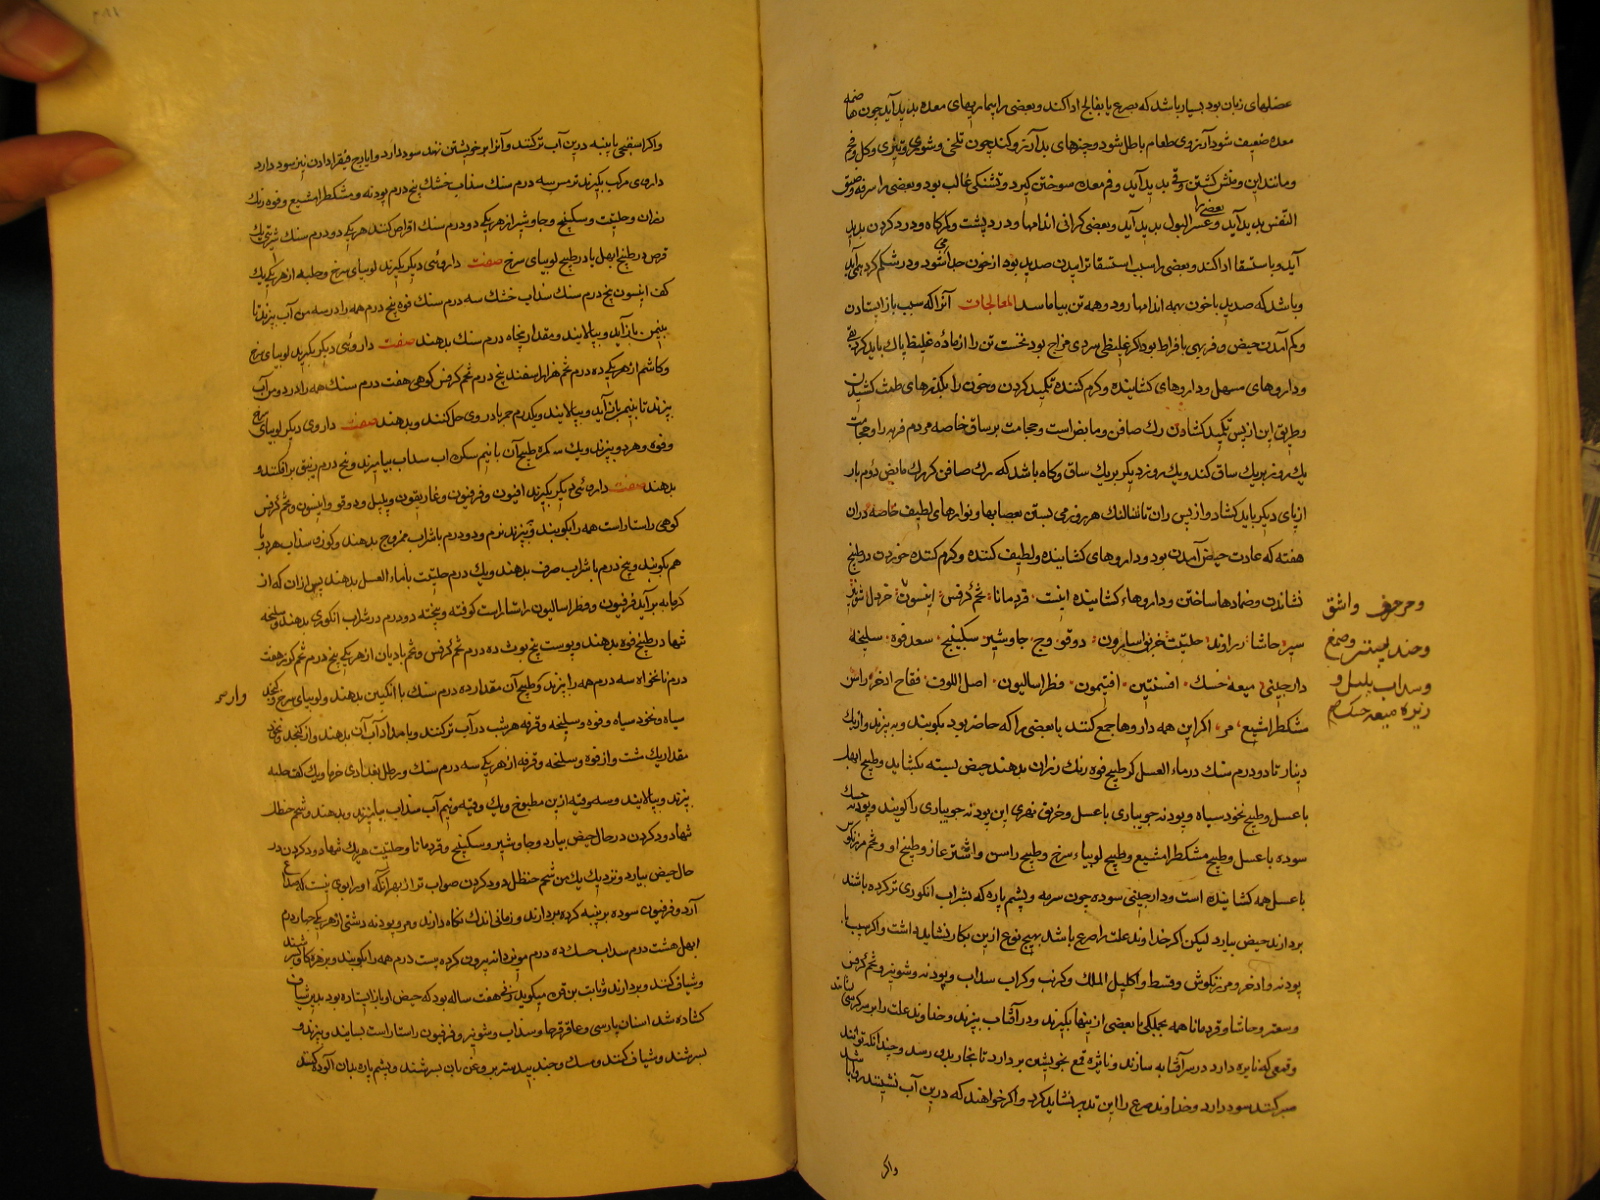 عضلهای زبان بود بسیار باشد که بصرع یا بفالج ادا کند و بعضی را بیماریهای معده بدید آید چون
معده ضعیف شود آرزوی طعام باطل شود و چیزهای بد آرزو کند چون تلخی و شوری
و مانند این و منش کشتن و قی بدید آید و فم معده سوختن کیرد و تشنکی غالب بود و بعضی را سرفه و ضیق
النفس بدید آید و عسر البول بدید آید و بعضی را کرانی اندامها و درد پشت و کمرکاه و درد کردن بدید
آید و باستسقا ادا کند و بعضی را سبب استسقا
و باشد که صدید با خون بهمه اندامها رود و همه تن بیاماسد المعالجات آنرا که سبب باز ایستادن
و کم آمدن حیض و فربهی بافراط بود اکر غلیظی سردی مزاج بود نخست تن را از ماده غلیظ پاک باید کرد بقی
و داروهای مسهل و داروهای کشاینده و کرم کننده تکمید کردن و خون را بکذرهای طمث کشیدن
و طریق این از پس تکمید کشادن رک صافن و مابض است و حجامت بر ساق خاصه مردم فربه را و حجامت
یک روز بر یک ساق کند و یک روز دیکر بر یک ساق و کاه باشد که رک صافن کر رک مابض دوم بار
از پای دیکر باید کشاد و از پس ران تا شتالنک هر روز می بستن بعصابها و نوارهای لطیف خاصه در آن
هفته که عادت حیض آمدن بود و داروهای کشاینده و لطیف کننده و کرم کننده خوردن در طبیخ
نشاندن و ضمادها ساختن و داروهاء کشاینده اینست قردمانا تخم کرفس انیسون خردل شونیز
سیر حاشا زراوند حلتیت خربق اسارون دوقو وج جاوشیر سکبینج سعد فوه سلیخه
دارچینی میعه حسک افسنتین افتیمون فطراسالیون اصل اللوف فقاح اذخر راسن
مشکطرامشیع مر اکر این همه داروها جمع کنند یا بعضی را که حاضر بود بکوبند و به بیزند و از یک
دینار تا دو درم سنک در ماء العسل کر طبیخ فوه رنک رزان بدهند حیض بسته بکشاید و طبیخ ابهل
با عسل و طبیخ نخود سیاه و پودنه جویباری با عسل و خربق نهری این پودنه جویباری را کوبند و پودنه
سوده با عسل و طبیخ مشکطرامشیع و طبیخ لوبیاء سرخ و طبیخ راسن و اشترغاز و طبیخ او و تخم مرزنکوش
با عسل همه کشاینده است و دارچینی سوده چون سرمه و پشم پاره که بشراب انکوری تر کرده باشند
بردارند حیض بیارد لیکن اکر خداوند علت را صرع باشد بهیچ نوع ازین بکار نشاید داشت و اکر
پودنه و اذخر و مرزنکوش و قسط و اکلیل الملک و کرنب و کراب سداب و پودنه و شونیز و تخم کرفس
و سعتر و حاشا و قردمانا همه بجملکی یا بعضی از اینها بکیرند و در آفتاب بپزند و خداوند علت را بر سر کرسی نشانند
و قمعی که نایزه دارد در سر آفتابه سازند و نایزه قمع بخویشتن بردارد تا بخار بدو رسد و چندانکه تواند
صبر کند سود دارد و خداوند صرع را این تدبیر نشاید کرد و اکر خواهند که درین آب نشیند روا باشد
واکر
و حرجرف واشق
وجند بیدستر وصمغ
وسداب بلبل و
زیره میعه حسک
واکر اسفنجی یا پنبه درین آب تر کنند و آنرا بر خویشتن نهد سود دارد و ایارج فیقرا دادن نیز سود دارد
داروی مرکب بکیرند ترمس سه درم سنک سداب خشک پنج درم پودنه و مشکطرامشیع و فوه رنک
رزان و حلتیت و سکبینج و جاوشیر از هر یکی دو درم سنک اقراص کنند هر یکی دو درم سنک شربتی یک
قرص در طبیخ ابهل یا در طبیخ لوبیای سرخ صفت داروئی دیکر بکیرند لوبیای سرخ و حلبه از هر یکی یک
کف انیسون پنج درم سنک سداب خشک سه درم سنک فوه پنج درم همه را در سه من آب بپزند تا
بنیمن باز آید و بپالایند و مقدار پنجاه درم سنک بدهند صفت داروئی دیکر بکیرند لوبیای سرخ
و کاشم از هر یکی ده درم تخم هزار اسفند پنج درم تخم کرفس کوهی هفت درم سنک همه را در دو من آب
بپزند تا بنیم باز آید و بپالایند و یکدرم در وی حل کنند و بدهند صفت داروی دیکر لوبیای سرخ
و فوه و هر دو بپزند و یک طبیخ آن با نیم آب سداب بیامیزند و پنج درم زیبق برافکنند و
بدهند صفت داروئی دیکر بکیرند افیون و فرفیون و غاریقون و پلپل و دوقو و انیسون و تخم کرفس
کوهی راستاراست همه را بکوبند و بپزند نرم و دو درم با شراب ممزوج بدهند و کوزه سداب هر دو با
هم بکوبند و پنج درم با شراب صرف بدهند و یک درم حلتیت با ماء العسل بدهند پس از آن که از
کرمابه برآید فرفیون و فطراسالیون راستاراست کوفته و بیخته دو درم در شراب انکوری بدهند و سلیخه
تنها در طبیخ فوه بدهند و پوست بیخ توت ده درم تخم کرفس و تخم بادیان از هر یکی پنج درم تخم کزر هفت
درم نانخواه سه درم همه را بپزند کر طبیخ آن مقدار ده درم سنک با انکبین بدهند و لوبیای سرخ و کنجد
سیاه و نخود سیاه و فوه و سلیخه و قرفه هر شب در آب تر کنند و بامداد آب آن بدهند و از کنجد و نخود
مقدار یک مشت و از فوه و سلیخه و قرفه از هر یکی سه درم سنک و رطل بغدادی خرما و یک کف حلبه
بپزند و بپالایند و سه وقیه ازین مطبوخ و یک وقیه و نیم آب سداب بیامیزند و بدهند و شحم حنظل
تنها دود کردن در حال حیض بیارد و جاوشیر و سکبینج و قردمانا و حلتیت هر یک تنها دود کردن در
حال حیض بیارد و نزدیک من شحم حنظل دود کردن صواب تر از بهر آنکه او را بوی نیست که صداع
آرد و فرفیون سوده بر پنبه کرده بردارند و زمانی اندک نکاه دارند و مر و پودنه دشتی از هر یکی چهار درم
ابهل هشت درم سداب خشک ده درم مویز دانه بیرون کرده بیست درم همه را بکوبند و بزهره کاو بسرشند
و شیاف کنند و بردارند و ثابت بن قره میکوید زنی هفت ساله بود که حیض او باز ایستاده بود بدین شیاف
کشاده شد اسنان پارسی و عاقرقرحا و سداب و شونیز و فرفیون راستاراست بسایند و بپزند و
بسرشند و شیاف کنند و مسک و جند بیدستر بروغن بان بسرشند و پشم پاره بدان آلوده کنند